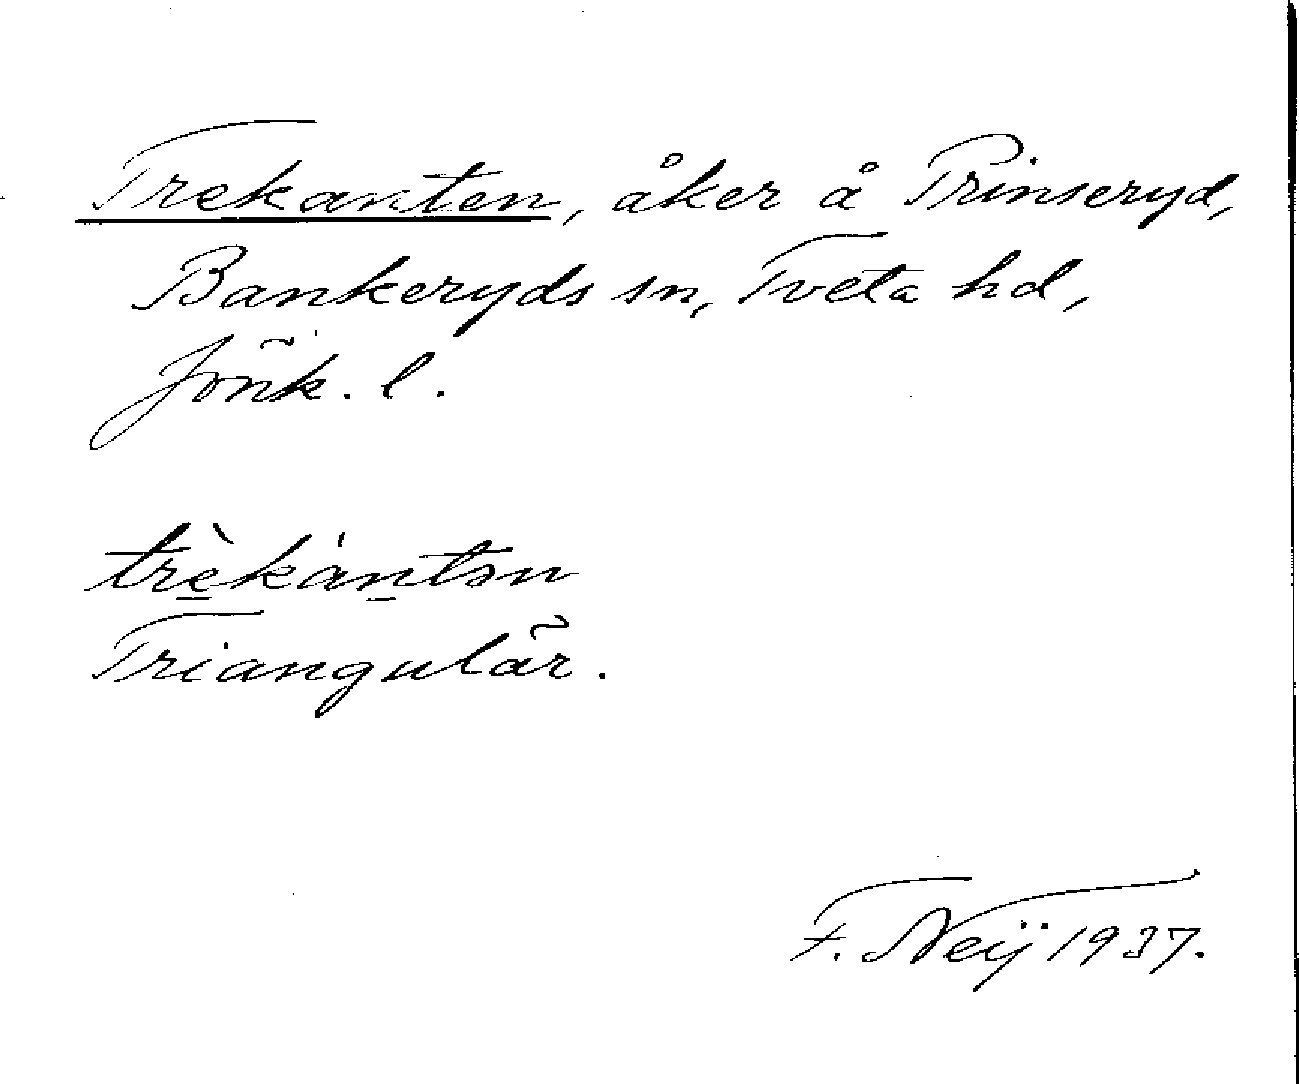 Trekanten, åker å Prinseryd,
Bankeryds sn, Tveta hd,
Jönk. l.
trè̱kàṉtən
Triangulär.
F. Neij 1937.